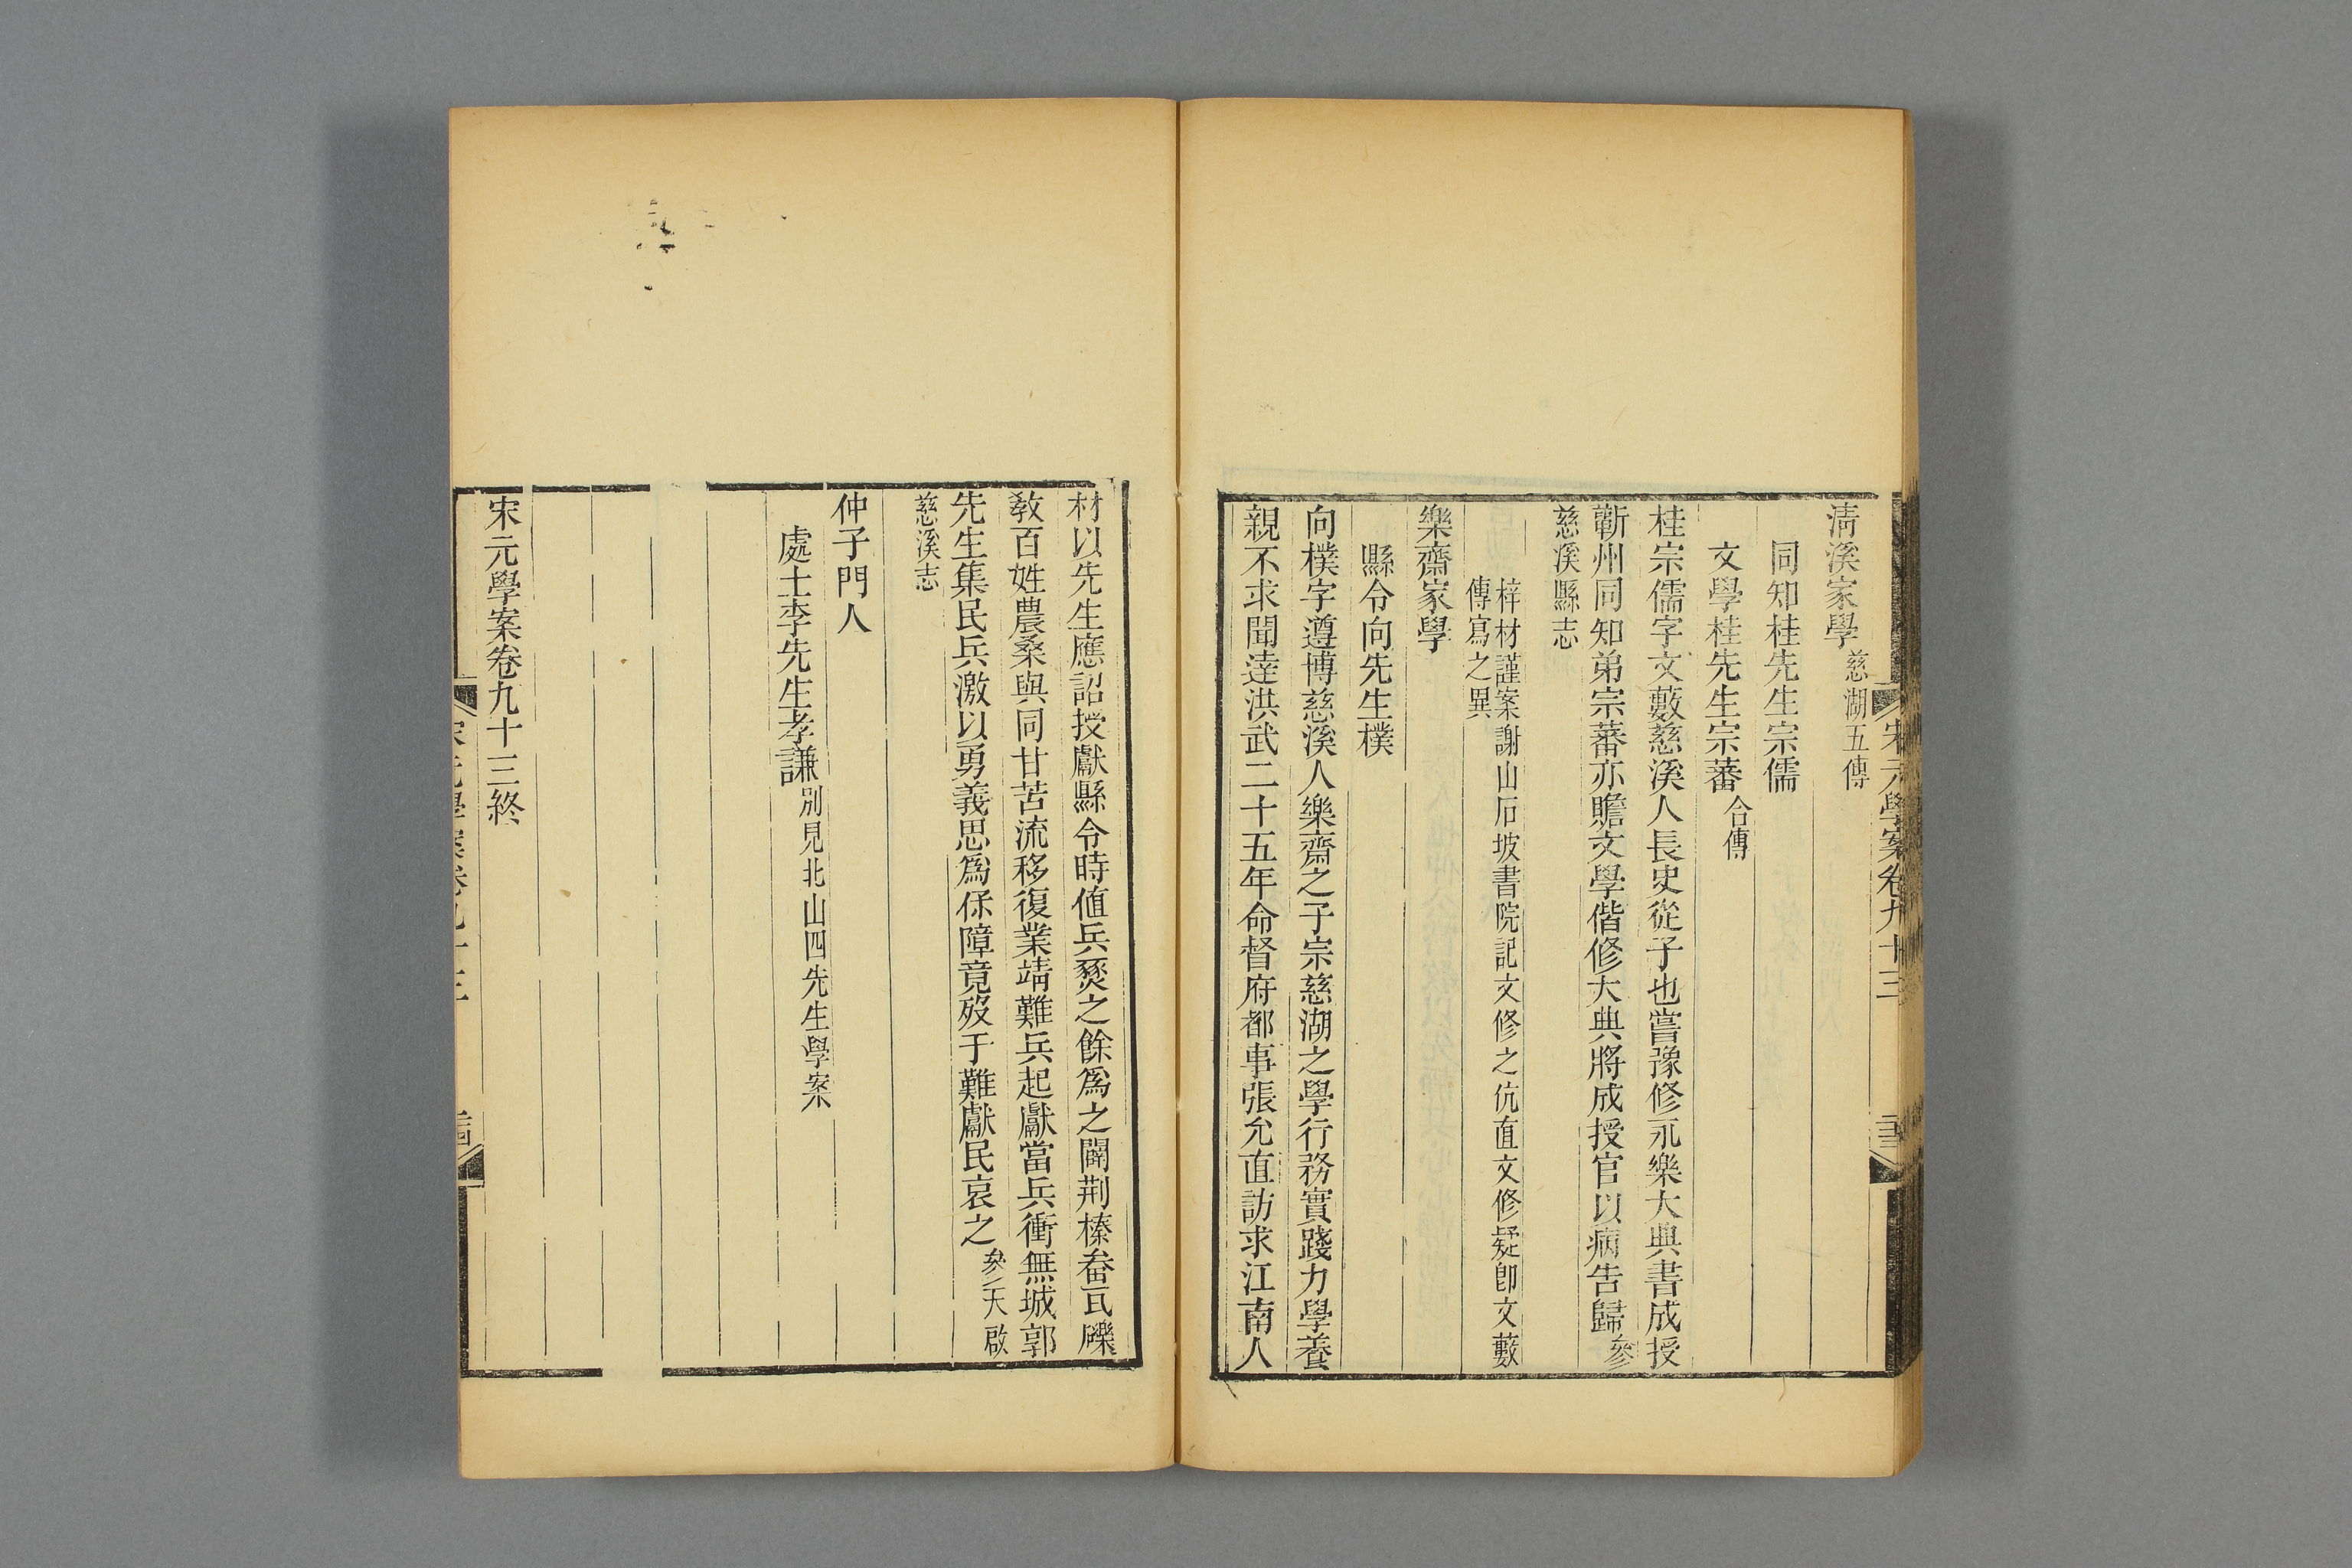 宋元學案卷九十三
清溪家學慈湖五傳
同知桂先生宗儒
文學桂先生宗蕃合傳
桂宗儒字文藪慈溪人長史從子也嘗豫修永樂大典書成授
蘄州同知弟宗蕃亦贍文學偕修大典將成授官以病告歸參
慈溪縣志
梓材謹案謝山石坡書院記文修之伉直文修疑卽文藪
傳寫之異
樂齋家學
縣令向先生樸
向樸字遵博慈溪人樂齋之子宗慈湖之學行務實踐力學養
親不求聞達洪武二十五年命督府都事張允直訪求江南人
材以先生應詔授獻縣令時値兵燹之餘爲之闢荆榛畚瓦礫
敎百姓農桑與同甘苦流移復業靖難兵起獻當兵衝無城郭
先生集民兵激以勇義思爲保障竟歿于難獻民哀之參天啟
慈溪志
仲子門人
處士李先生孝謙別見北山四先生學案
宋元學案卷九十三終
宋元學案卷九十三